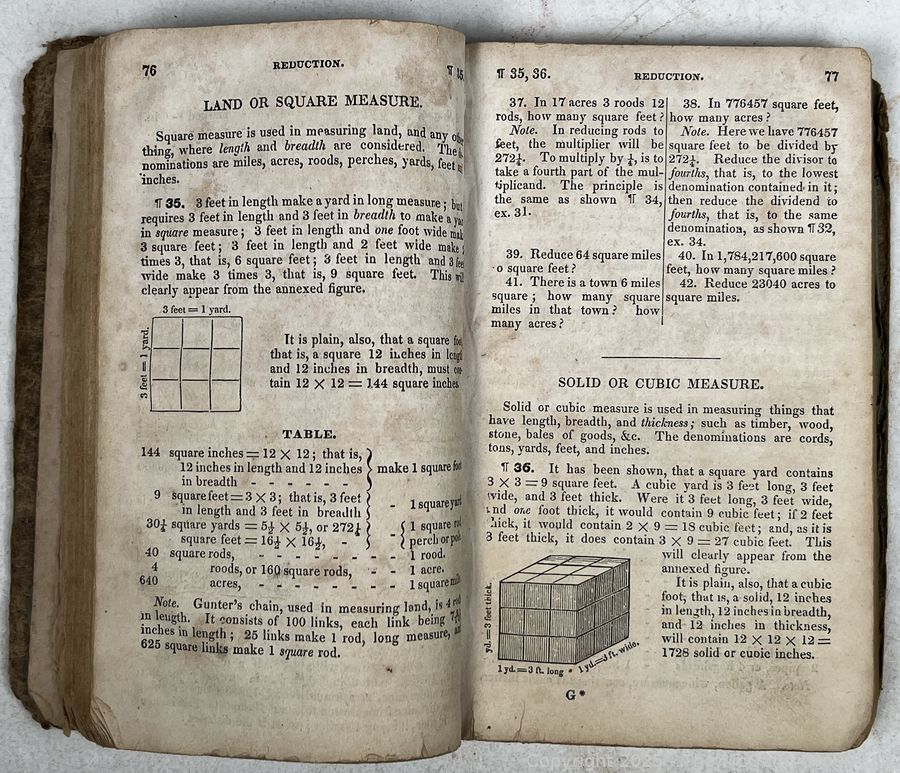 76
REDUCTION.
¶ 35.
LAND OR SQUARE MEASURE.
Square measure is used in measuring land, and any
thing, where length and breadth are considered. The
nominations are miles, acres, roods, perches, yards, feet
inches.
¶ 35. 3 feet in length make a yard in long measure; but
requires 3 feet in length and 3 feet in breadth to make a
in square measure; 3 feet in length and one foot wide
3 square feet; 3 feet in length and 2 feet wide make
times 3, that is, 6 square feet; 3 feet in length and 3
wide make 3 times 3, that is, 9 square feet. This
clearly appear from the annexed figure.
3 feet = 1 yard.
3 feet = 1 yard.
It is plain, also, that a square
that is, a square 12 inches in
and 12 inches in breadth, must
tain 12 × 12 = 144 square inches.
TABLE.
144 square inches = 12 × 12; that is,
12 inches in length and 12 inches
in breadth - - - - - -
make 1 square
9 square feet = 3 × 3; that is, 3 feet
in length and 3 feet in breadth
- 1 square
30¼ square yards = 5½ × 5½, or 272¼
square feet = 16½ × 16½, - -
- 1 square
perch or
40 square rods, - - - - - 1 rood.
4 roods, or 160 square rods, - - - 1 acre.
640 acres, - - - - - - 1 square
Note. Gunter's chain, used in measuring land, is 4
in length. It consists of 100 links, each link being
inches in length; 25 links make 1 rod, long measure,
625 square links make 1 square rod.
¶ 35, 36.
REDUCTION.
77
37. In 17 acres 3 roods 12
rods, how many square feet?
Note. In reducing rods to
feet, the multiplier will be
272¼. To multiply by ¼, is to
take a fourth part of the mul-
tiplicand. The principle is
the same as shown ¶ 34,
ex. 31.
39. Reduce 64 square miles
o square feet?
41. There is a town 6 miles
square; how many square
miles in that town? how
many acres?
38. In 776457 square feet,
how many acres?
Note. Here we have 776457
square feet to be divided by
272¼. Reduce the divisor to
fourths, that is, to the lowest
denomination contained in it;
then reduce the dividend to
fourths, that is, to the same
denomination, as shown ¶ 32,
ex. 34.
40. In 1,784,217,600 square
feet, how many square miles?
42. Reduce 23040 acres to
square miles.
SOLID OR CUBIC MEASURE.
Solid or cubic measure is used in measuring things that
have length, breadth, and thickness; such as timber, wood,
stone, bales of goods, &c. The denominations are cords,
tons, yards, feet, and inches.
¶ 36. It has been shown, that a square yard contains
3 × 3 = 9 square feet. A cubic yard is 3 feet long, 3 feet
wide, and 3 feet thick. Were it 3 feet long, 3 feet wide,
and one foot thick, it would contain 9 cubic feet; if 2 feet
thick, it would contain 2 × 9 = 18 cubic feet; and, as it is
3 feet thick, it does contain 3 × 9 = 27 cubic feet. This
will clearly appear from the
annexed figure.
It is plain, also, that a cubic
foot, that is, a solid, 12 inches
in length, 12 inches in breadth,
and 12 inches in thickness,
will contain 12 × 12 × 12 =
1728 solid or cubic inches.
yd. = 3 feet thick.
1 yd. = 3 ft. long
1 yd. = 3 ft. wide.
G*
Copyright 2025